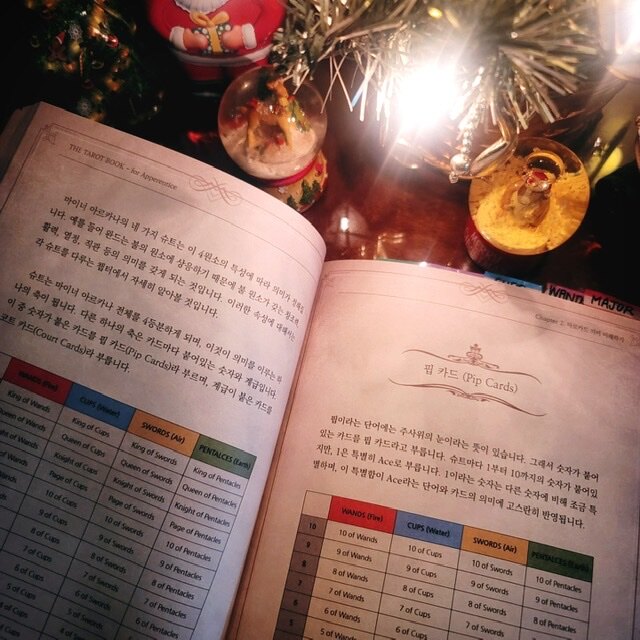 THE TAROT BOOK - for Apprentice
마이너 아르카나의 네 가지 슈트는 이 4원소의 특성에 따라 의미가 정해집
니다. 예를 들어 완드는 불의 원소에 상응하기 때문에 불 원소가 갖는 창조력,
활력, 열정, 직관 등의 의미를 갖게 되는 것입니다. 이러한 속성에 대해서는
각 슈트를 다루는 챕터에서 자세히 알아볼 것입니다.
슈트는 마이너 아르카나 전체를 4등분하게 되며, 이것이 의미를 이루는 하
나의 축이 됩니다. 다른 하나의 축은 카드마다 붙어있는 숫자와 계급입니다.
이 중 숫자가 붙은 카드를 핍 카드(Pip Cards)라 부르며, 계급이 붙은 카드를
코트 카드(Court Cards)라 부릅니다.
WANDS (Fire) CUPS (Water) SWORDS (Air) PENTACLES (Earth)
King of Wands King of Cups King of Swords King of Pentacles
Queen of Wands Queen of Cups Queen of Swords Queen of Pentacles
Knight of Cups Knight of Swords Knight of Pentacles
Page of Cups Page of Swords Page of Pentacles
10 of Cups 10 of Swords 10 of Pentacles
9 of Cups 9 of Swords 9 of Pentacles
8 of Cups 8 of Swords 8 of Pentacles
7 of Cups 7 of Swords 7 of Pentacles
6 of Cups 6 of Swords 6 of Pentacles
5 of Cups 5 of Swords
WAND MAJOR
Chapter 2.
핍 카드 (Pip Cards)
핍이라는 단어에는 주사위의 눈이라는 뜻이 있습니다. 그래서 숫자가 붙어
있는 카드를 핍 카드라고 부릅니다. 슈트마다 1부터 10까지의 숫자가 붙어있
지만, 1은 특별히 Ace로 부릅니다. 1이라는 숫자는 다른 숫자에 비해 조금 특
별하며, 이 특별함이 Ace라는 단어와 카드의 의미에 고스란히 반영됩니다.
WANDS (Fire) CUPS (Water) SWORDS (Air) PENTACLES (Earth)
10 10 of Wands 10 of Cups 10 of Swords 10 of Pentacles
9 9 of Wands 9 of Cups 9 of Swords 9 of Pentacles
8 8 of Wands 8 of Cups 8 of Swords 8 of Pentacles
7 7 of Wands 7 of Cups 7 of Swords 7 of Pentacles
6 6 of Wands 6 of Cups
5 5 of Wands